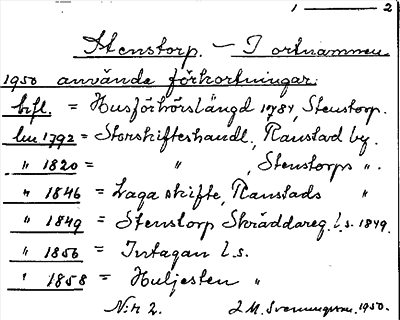 1 — 2
Stenstorp. – I ortnamnen
1950 använda förkortningar:
hfl. = Husförhörslängd 1784, Stenstorp.
lm 1792 = Storskifteshandl., Ranstad by.
" 1820 = " , Stenstorps ".
" 1846 = Laga skifte, Ranstads "
" 1849 = Stenstorp Skräddareg. l.s. 1849.
" 1856 = Intagan l.s.
" 1858 = Huljesten "
N:r 2. J M. Svenningsson. 1950.